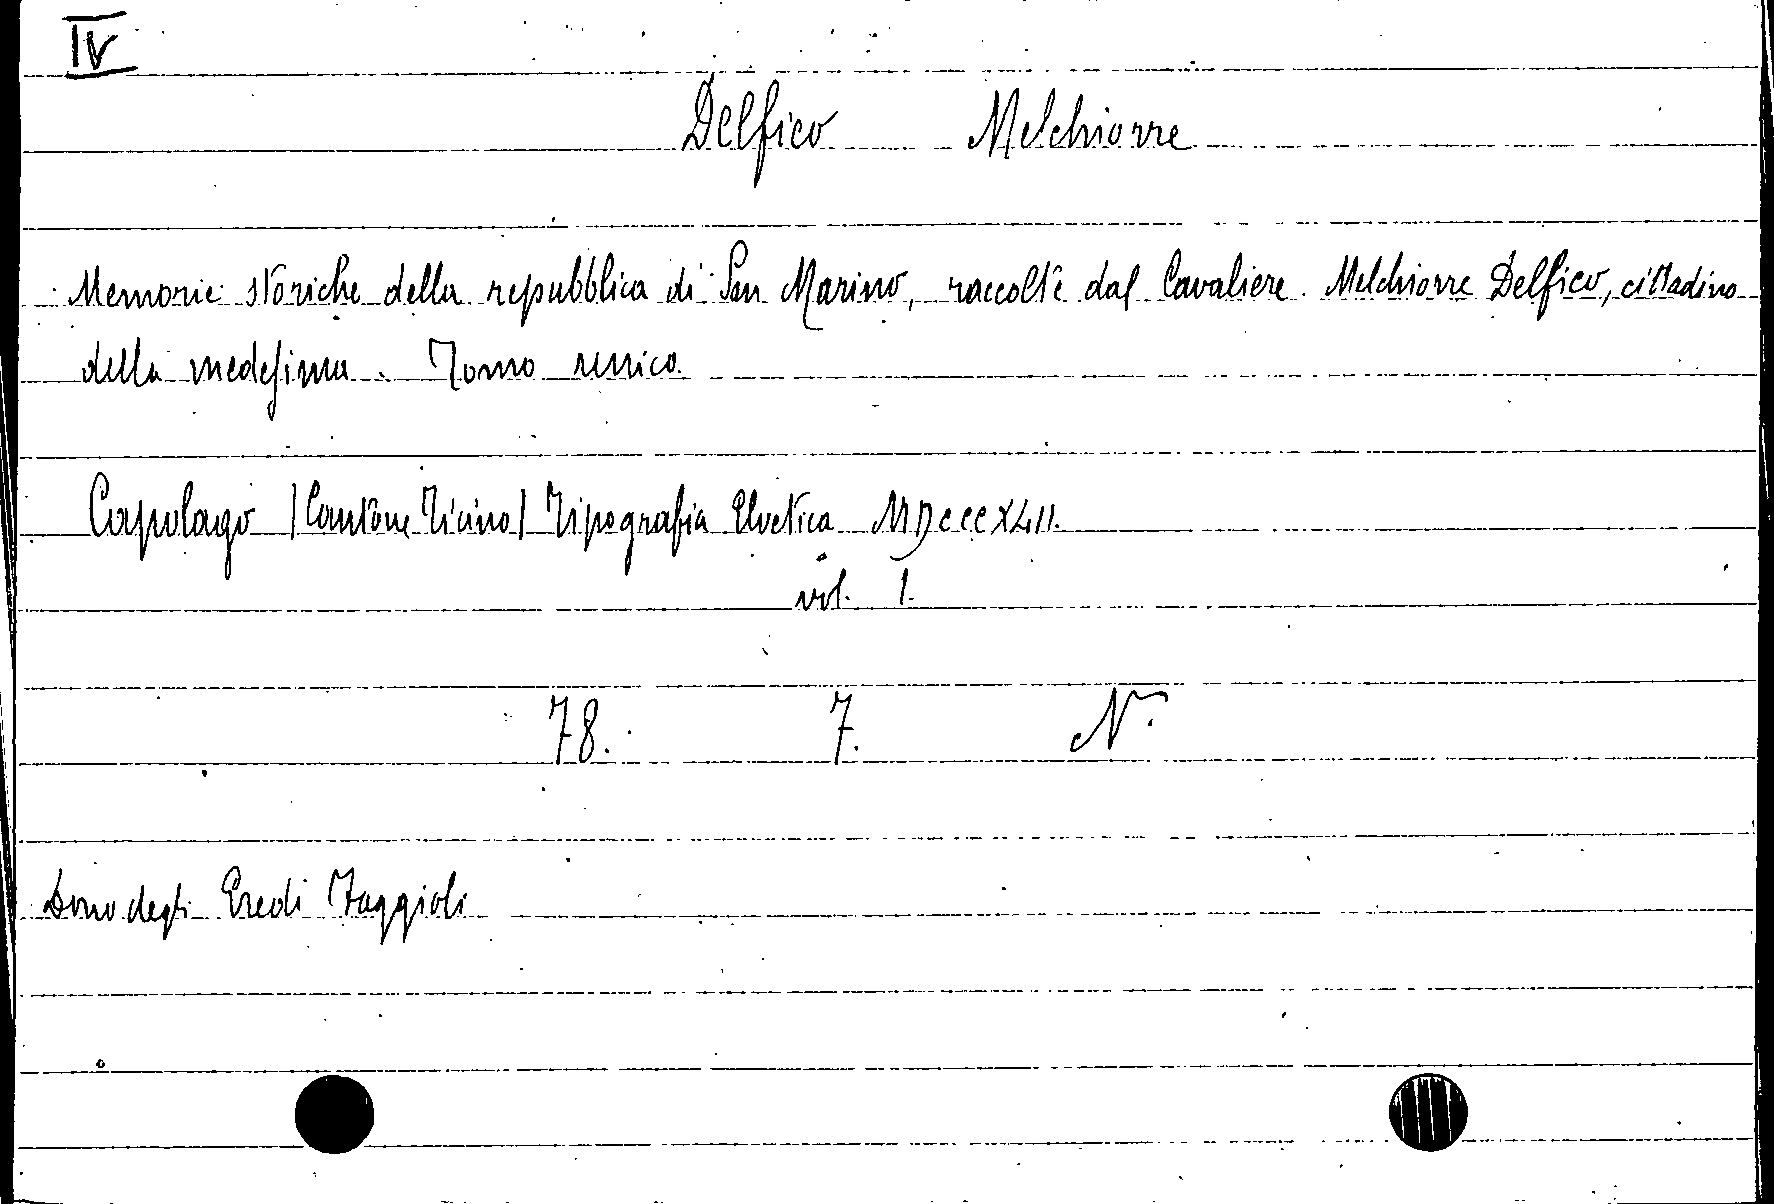 IV
Delfico Melchiorre
Memorie storiche della repubblica di San Marino, raccolte dal Cavaliere Melchiorre Delfico, cittadino
della medesima. Tomo unico.
Capolago (Cantone Ticino) Tipografia Elvetica MDCCCXLII.
vol. 1.
78. 7. N.
Dono degli Eredi Faggioli